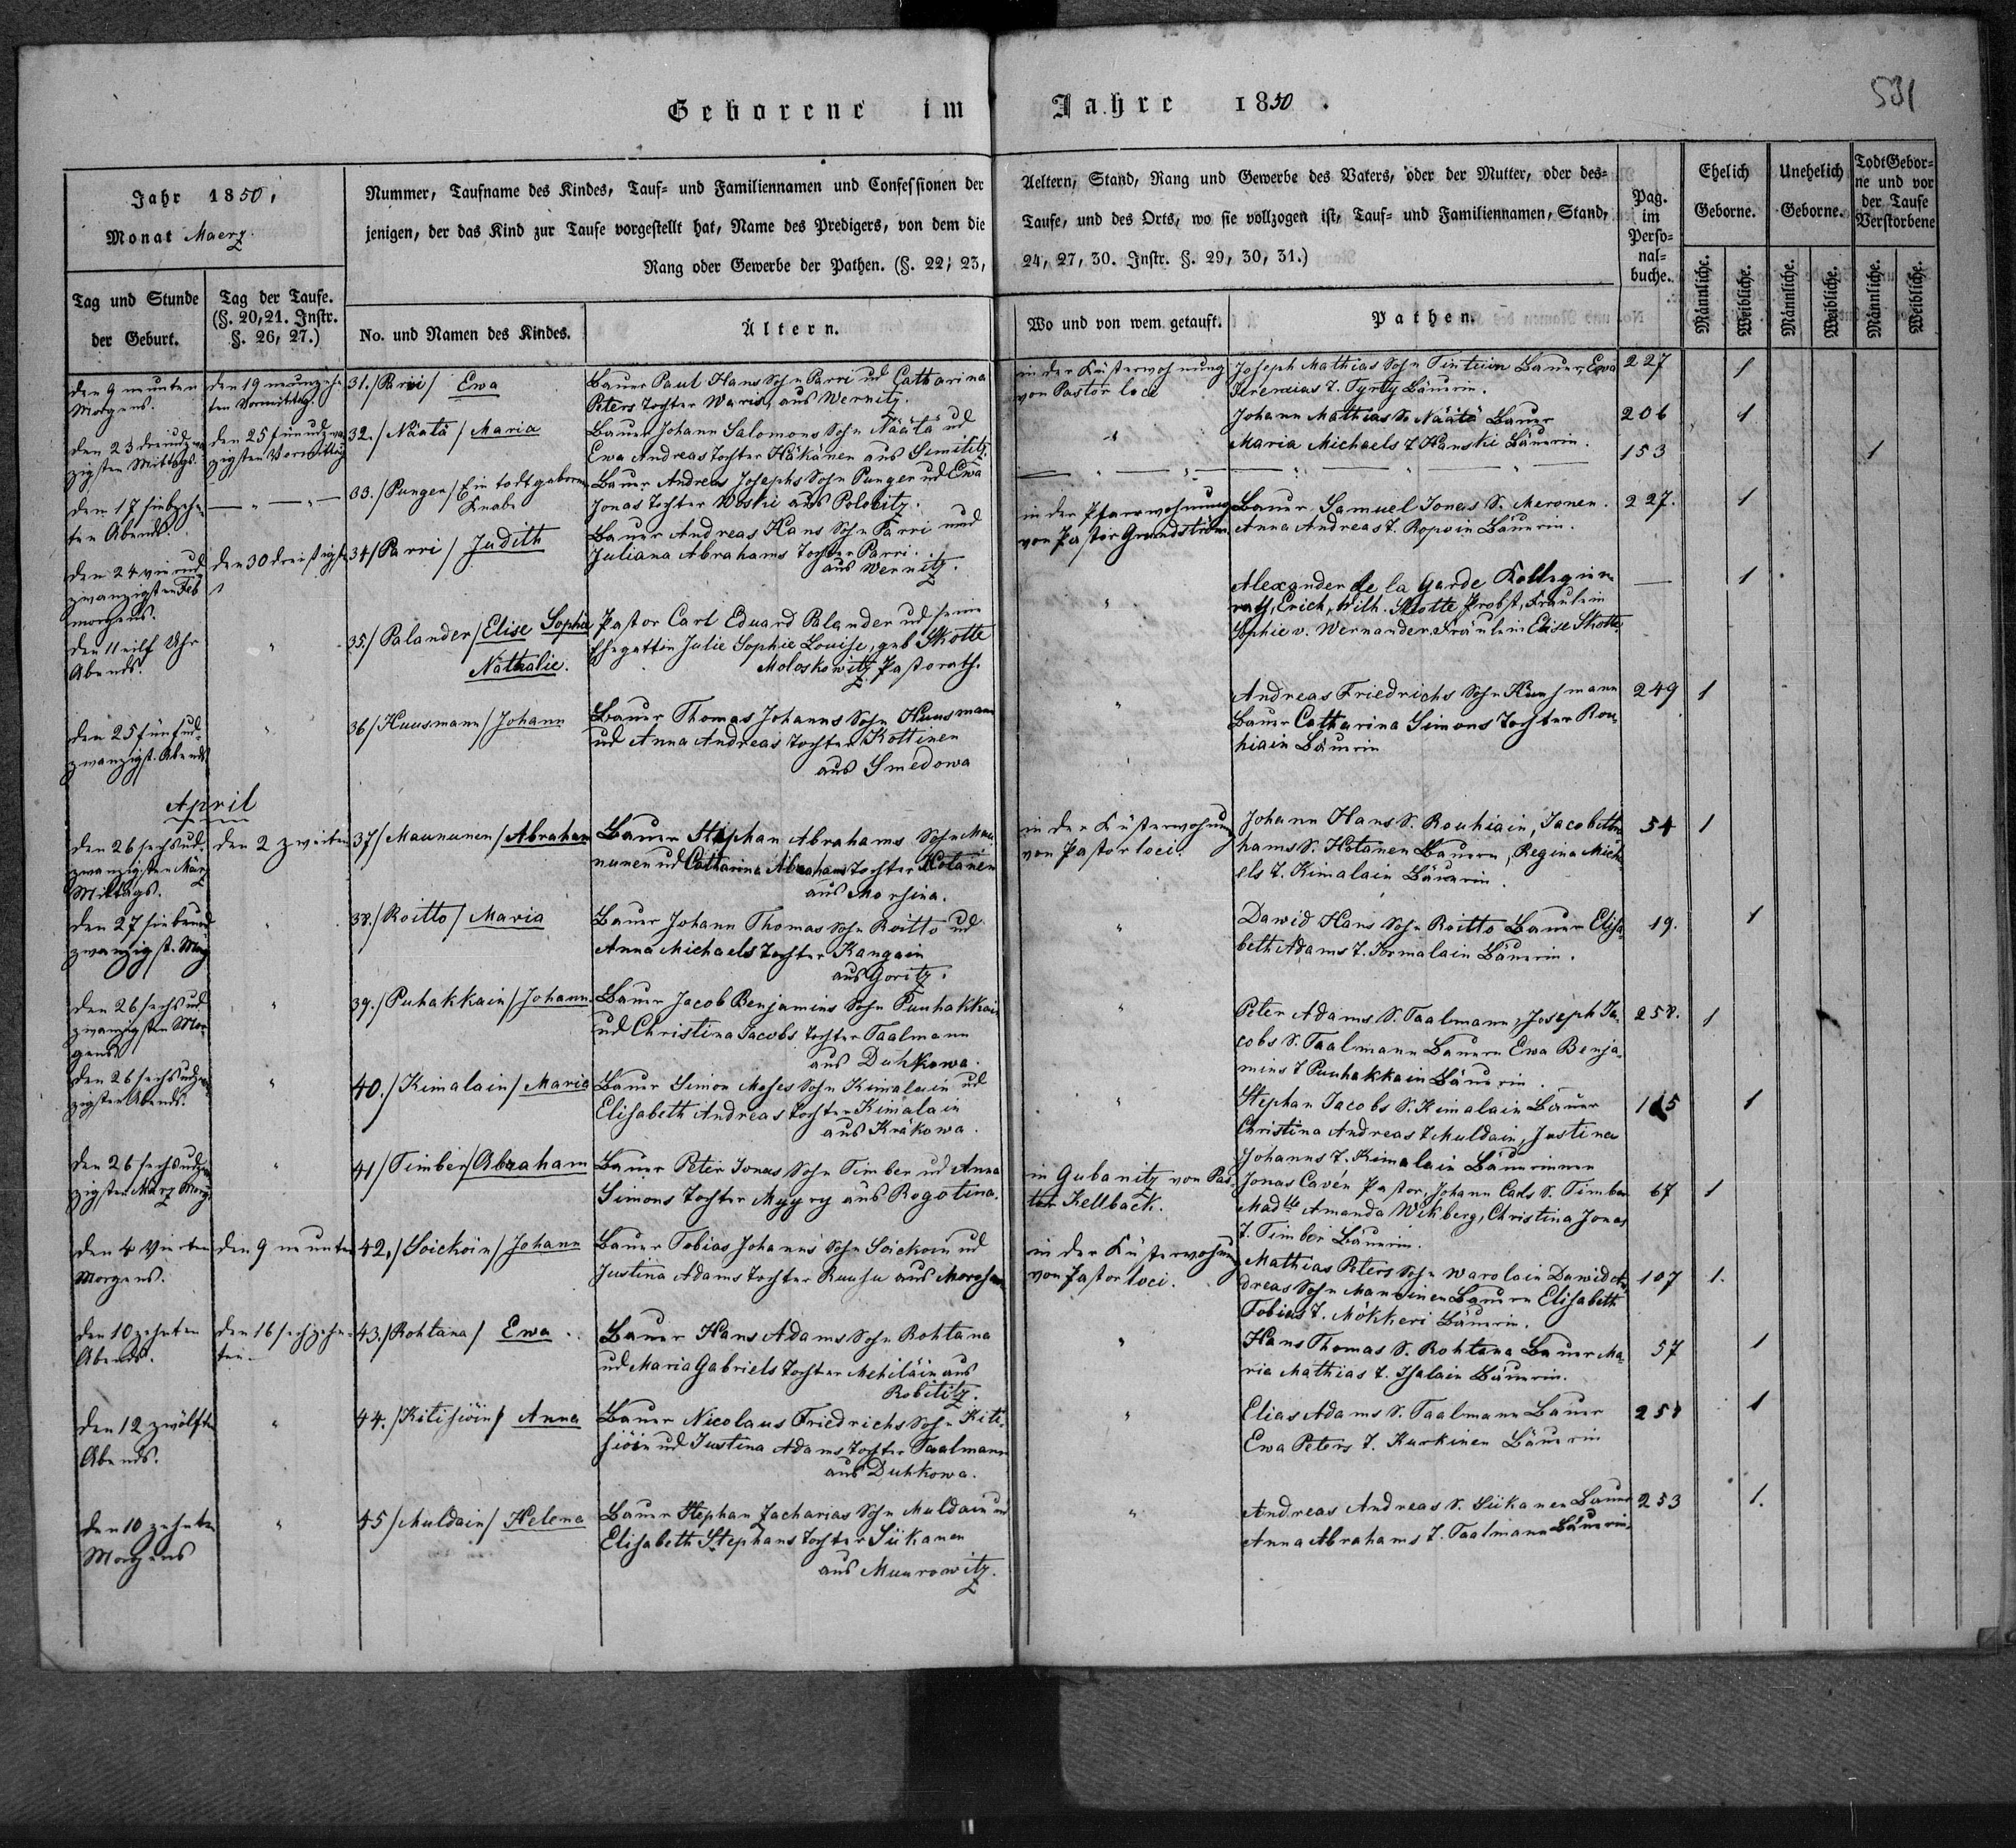 531
Geborene im Jahre 1850.
Jahr 1850,
Monat Maerz.
Nummer, Taufname des Kindes, Tauf- und Familiennamen und Confessionen der
jenigen, der das Kind zur Taufe vorgestellt hat, Name des Predigers, von dem die
Rang oder Gewerbe der Pathen. (§. 22, 23,
Aeltern, Stand, Rang und Gewerbe des Vaters, oder der Mutter, oder des-
Taufe, und des Orts, wo sie vollzogen ist, Tauf- und Familiennamen, Stand,
24, 27, 30. Instr. §. 29, 30, 31.)
Pag.
im
Perso-
nal-
buche.
Ehelich
Geborne.
Unehelich
Geborne.
Todt Gebor-
ne und vor
der Taufe
Verstorbene
Tag und Stunde
der Geburt.
Tag der Taufe.
(§. 20, 21. Instr.
§. 26, 27.)
No. und Namen des Kindes.
Ältern.
Wo und von wem getauft.
Pathen.
Männliche.
Weibliche.
Männliche.
Weibliche.
Männliche.
Weibliche.
den 9 neunten
Morgens.
den 19 neunzehn
ten Vormittag.
31./ Parri/ Ewa
Bauer Paul Hans Sohn Parri ud Catharina
Peters Tochter Waris, aus Wernitz.
in der Küsterwohnung
von Pastor loci
Joseph Mathias Sohn Bauer, Ewa
Jeremias T. Tyrty Bäuerin.
227
1
den 23 dreiudzwa
zigsten Mittags.
den 25 fünfudzwan
zigsten Vormittag
32./ Näätä/ Maria
Bauer Johann Salomons Sohn Näätä ud
Ewa Andreas Tochter Häkänen aus Simititz.
"
Johann Mathias S. Näätä Bauer
Maria Michaels T. Hanski Bäuerin.
206
1
den 17 siebzehn
ten Abends.
— " —
33./ Punger/ Ein todtgeborner
Knabe
Bauer Andreas Josephs Sohn Punger ud Ewa
Jonas Tochter Woski aus Polobitz.
— " — " —
153
1
den 24 vierud
zwanzigsten Feb
morgens.
den 30 dreißigst
34/ Parri/ Judith
Bauer Andreas Hans Sohn Parri und
Juliana Abrahams Tochter Parri.
aus Wernitz.
in der Pfarrwohnung
von Pastor Grundström
Bauer Samuel Jonas S. Meronen.
Anna Andreas T. Ropoin Bäuerin.
227.
1
den 11 eilf Uhr
Abends.
"
35./ Palander/ Elise Sophie
Nathalie.
Pastor Carl Eduard Palander ud seine
Ehegattin Julie Sophie Louise, geb Skotte
Moloskowitz Pastorath.
"
Alexander de la Garde Kollegien
rath, Erich, Wilh. Skotte Probst, Fräulein
Sophie v. Wernander. Fräulein Elise Skotte.
—
1
den 25 fünfud-
zwanzigst. Abends
"
36/ Huusmann/ Johann
Bauer Thomas Johanns Sohn Huusmann
ud Anna Andreas Tochter Kottinen
aus Smedowa
"
Andreas Friedrichs Sohn Huusmann
Bauer Catharina Simons Tochter Rou-
hiain Bäuerin
249
1
April
den 26 sechsud-
zwanzigsten März
Mittags.
den 2 zweiten
37/ Maununen/ Abraham
Bauer Stephan Abrahams Sohn Mau
nunen ud Catharina Abrahams Tochter Hotanen
aus Morsina.
in der Küsterwohnung
von Pastor loci.
Johann Hans S. Rouhiain, Jacob Abra
hams S. Hotanen Bauern, Regina Mich
els T. Kimalain Bäuerin.
54
1
den 27 siebenud
zwanzigst. Morg
"
38./ Roitto/ Maria
Bauer Johann Thomas Sohn Roitto ud
Anna Michaels Tochter Kangain
aus Goritz.
"
Dawid Hans Sohn Roitto Bauer Elisa-
beth Adams T. Bäuerin.
19.
1
den 26 sechsud
zwanzigsten Mor
gens
"
39./ Puhakkain/ Johann.
Bauer Jacob Benjamins Sohn Puuhakkain
ud Christina Jacobs Tochter Taalmann
aus Duhkowa.
"
Peter Adams S. Taalmann, Joseph Ja-
cobs S. Taalmann Bauern Ewa Benja-
mins T Puuhakkain Bäuerin.
258.
1
den 26 sechsudzwan
zigsten Abends.
"
40./ Kimalain/ Maria
Bauer Simon Moses Sohn Kimalain ud
Elisabeth Andreas Tochter Kimalain
aus Kräkowa.
"
Stephan Jacobs S. Kimalain Bauer
Christina Andreas T Muldain, Justina
Johanns T. Kimalain Bäuerinnen
1
den 26 sechsudzwan
zigsten März Morg
"
41/ Timber/ Abraham
Bauer Peter Jonas Sohn Timber ud Anna
Simons Tochter Myyry aus Rogotina.
in Gubanitz von Pas-
tor Kellbäck.
Jonas Cavén Pastor, Johann Carls S. Timber
Madlle Amanda Wikberg, Christina Jonas
T. Timber Bäuerin.
67
1
den 4 Vierten
Morgens.
den 9 neunten
42./ Soickoin/ Johann
Bauer Tobias Johanns Sohn Soickoin ud
Justina Adams Tochter Ruusu aus
in der Küsterwohnung
von Pastor loci.
Mathias Peters Sohn Warolain Dawid An
dreas Sohn Bauern Elisabeth
Tobias T. Mökkeri Bäuerin.
107
1.
den 10 zehnten
Abends.
den 16 sechzehn-
ten
43./ Rohtana/ Ewa
Bauer Hans Adams Sohn Rohtana
ud Maria Gabriels Tochter Mehiläin aus
Robititz.
"
Hans Thomas S. Rohtana Bauer Ma-
ria Mathias T. Isalain Bäuerin.
57
1
den 12 zwölften
Abends.
"
44./ Kitisjöin/ Anna
Bauer Nicolaus Friedrichs Sohn Kiti-
sjöin ud Justina Adams Tochter Taalmann
aus Duhkowa.
"
Elias Adams S. Taalmann Bauer
Ewa Peters T. Kurkinen Bäuerin
258
1
den 10 zehnten
Morgens
"
45/ Muldain/ Helena
Bauer Stephan Zacharias Sohn Muldain ud
Elisabeth Stephans Tochter Siikanen
aus Muurowitz.
"
Andreas Andreas S. Siikanen Bauer
Anna Abrahams T. Taalmann Bäuerin.
253
1.